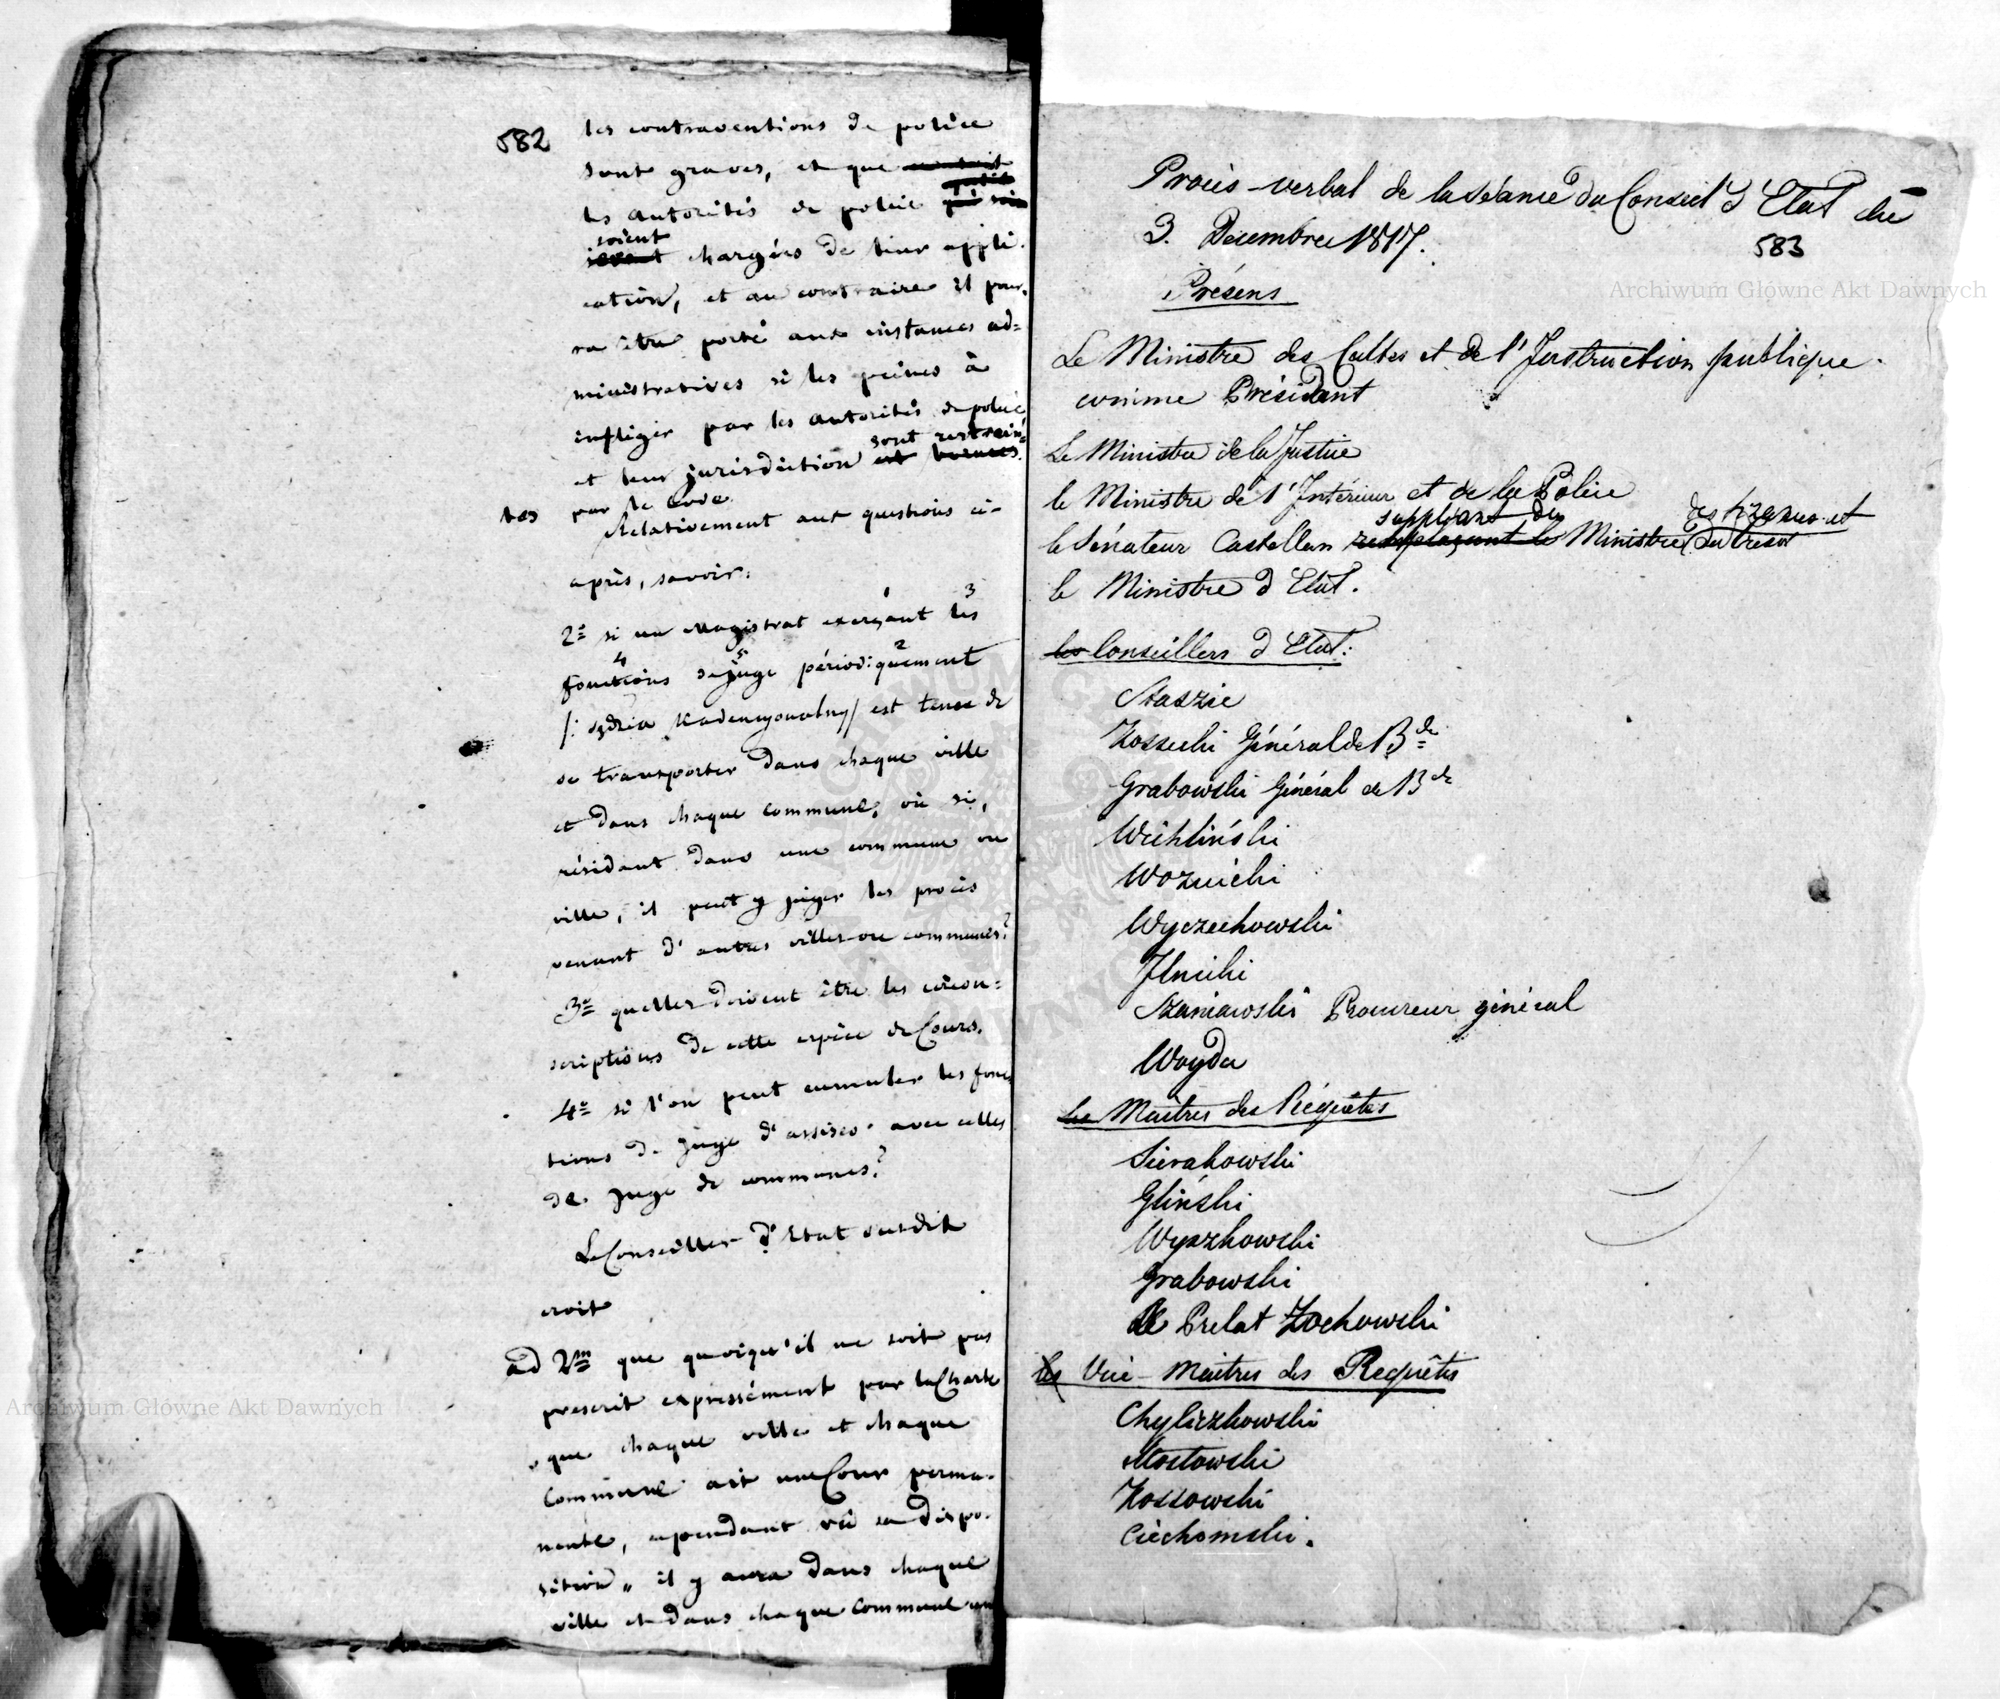 582
les contraventions de police
sont graves, et que
les autorités de police
soient
chargées de leur appli-
cation, et au contraire il pour-
ra être porté aux instances ad=
ministratives si les peines à
infliger par les autorités de police
sont restrein=
et leur jurisdiction est bornées
tes par le Code.
Relativement aux questions ci-
après, savoir:
2º si un Magistrat exerçant les
fonctions de juge périodiquement
/: sędzia Kadencyonalny/ est tenu de
se transporter dans chaque ville
et dans chaque commune, ou si,
résidant dans une commune ou
ville, il peut y juger les procès
venant d'autres villes ou communes?
3º quelles doivent être les circon=
scriptions de cette espèce de Cours.
4º si l'on peut cumuler les fonc
tions de juge d'assises avec celles
de juge de communes?
Le Conseiller d'Etat susdit
croit
ad 2m que quoiqu'il ne soit pas
prescrit expressément par la Charte
"que chaque ville et chaque
commune ait une Cour perma-
nente, cependant vû sa dispo-
sition „ il y aura dans chaque
ville et dans chaque commune un
Procès-verbal de la séance du Conseil d'Etat du
3. Decembre 1817.
583
Présens
Le Ministre des Cultes et de l'Instruction publique
comme Président
Le Ministre de la Justice
le Ministre de l'Intérieur et de la Police
suppléant du
des finances et
le Sénateur Castellan remplaçant le Ministre du trésor
le Ministre d'Etat.
les Conseillers d'Etat:
Staszic
Kossecki Général de B de
Grabowski Général de B de
Wichliński
Woznicki
Wyczechowski
Ilnicki
Szaniawski Procureur général
Woyda
les Maitres des Réquêtes
Sierakowski
Gliński
Wyszkowski
Grabowski
Le Prelat Zochowski
les Vice-Maitres des Requêtes
Chyliczkowski
Mostowski
Kossowski
Ciechomski.
Archiwum Główne Akt Dawnych
Archiwum Główne Akt Dawnych